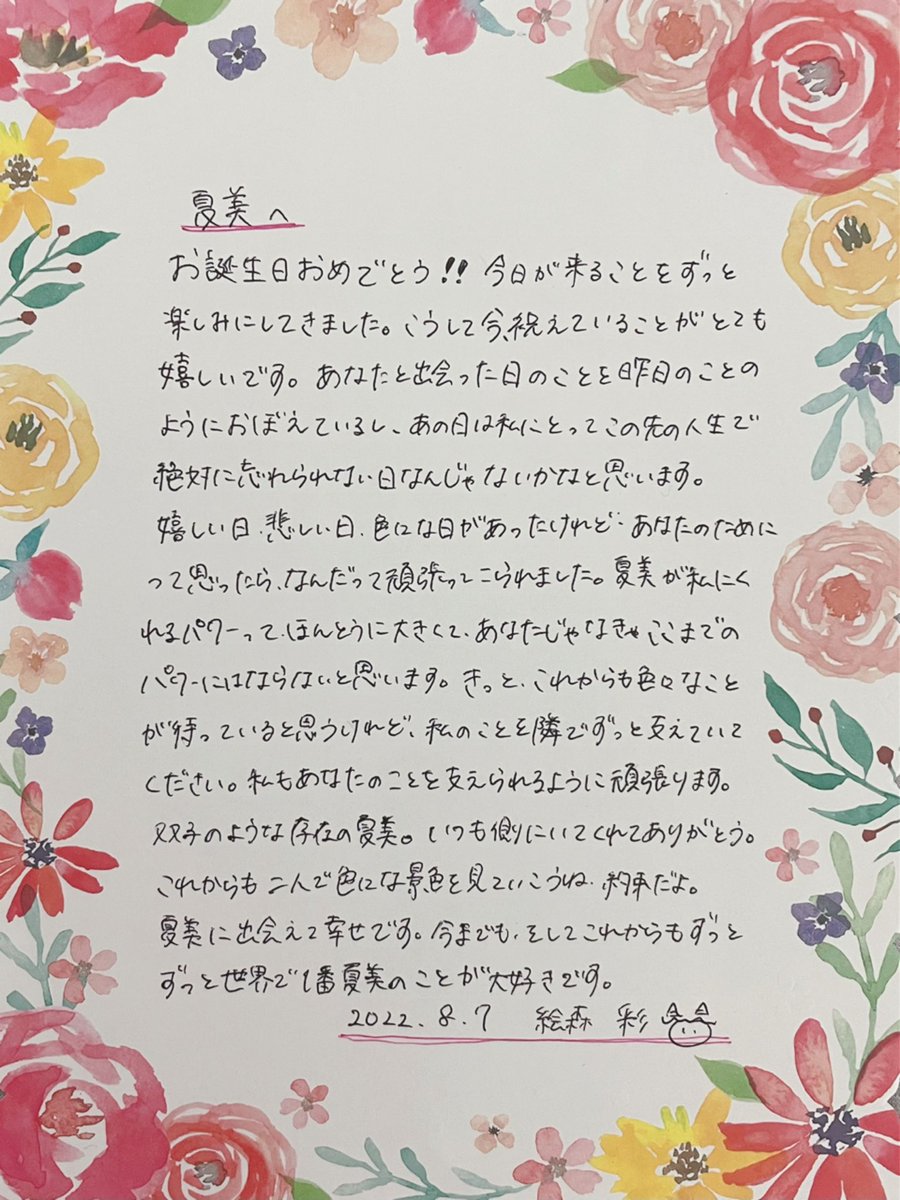 夏美へ
お誕生日おめでとう!! 今日が来ることをずっと
楽しみにしてきました。こうして今、祝えていることがとても
嬉しいです。あなたと出会った日のことを昨日のことの
ようにおぼえているし、あの日は私にとってこの先の人生で
絶対に忘れられない日なんじゃないかなと思います。
嬉しい日、悲しい日、色々な日があったけれど、あなたのために
って思ったら、なんだって頑張ってこられました。夏美が私にく
れるパワーって、ほんとうに大きくて、あなたじゃなきゃここまでの
パワーにはならないと思います。きっと、これからも色々なこと
が待っていると思うけれど、私のことを隣でずっと支えていて
ください。私もあなたのことを支えられるように頑張ります。
双子のような存在の夏美。いつも側にいてくれてありがとう。
これからも二人で色々な景色を見ていこうね、約束だよ。
夏美に出会えて幸せです。今までも、そしてこれからもずっと
ずっと世界で1番夏美のことが大好きです。
2022.8.7 絵森 彩